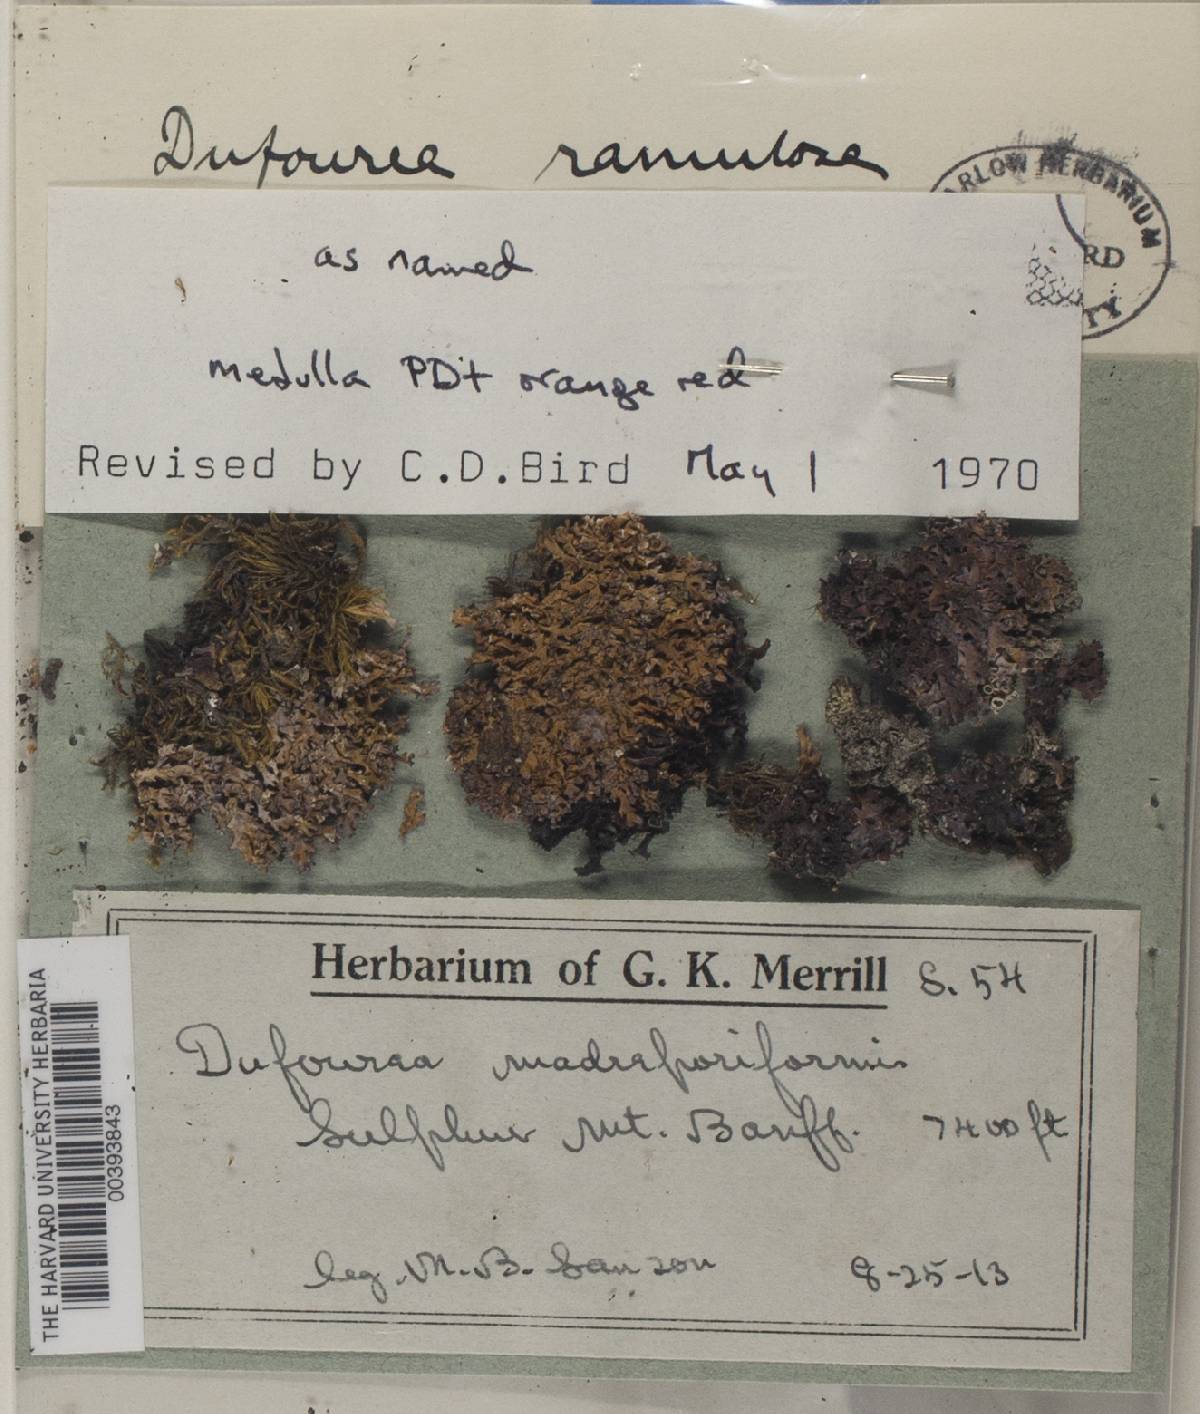 Dufourea ramulosa
ARLOW HERBARIUM
RD
TY
as named
medulla PD+ orange red
Revised by C.D.Bird May 1 1970
Herbarium of G. K. Merrill S. 54
Dufourea madreporiformis
Sulphur Mt. Banff. 7400 ft
leg. N. B. Sanson 8-25-13
THE HARVARD UNIVERSITY HERBARIA
00393843